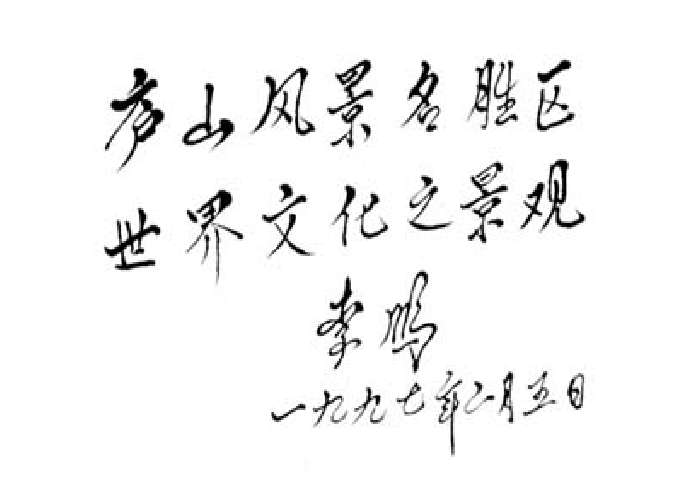 庐山风景名胜区
世界文化之景观
李鹏
一九九七年二月五日